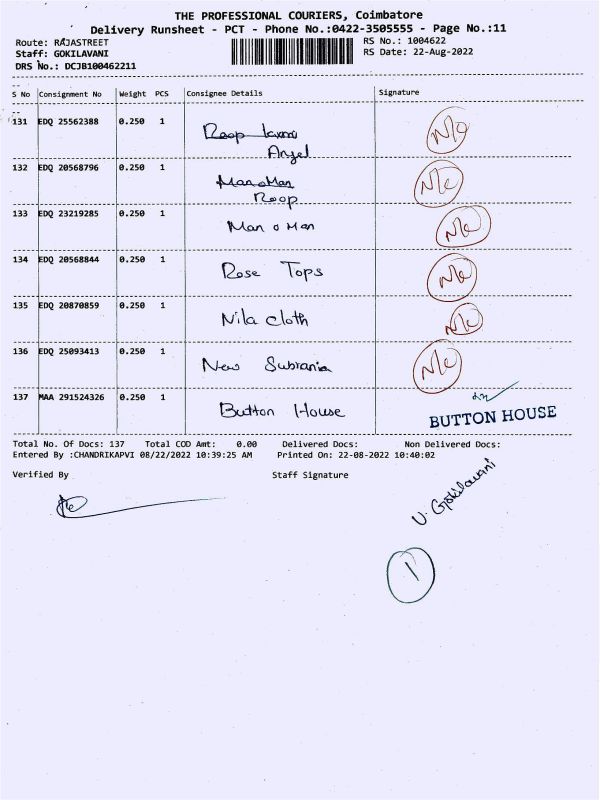 THE PROFESSIONAL COURIERS, Coimbatore
Delivery Runsheet - PCT - Phone No.:0422-3505555 - Page No.:11
Route: RAJASTREET
RS No.: 1004622
Staff: GOKILAVANI
RS Date: 22-Aug-2022
DRS No.: DCJB100462211
S No Consignment No Weight PCS Consignee Details Signature
131 EDQ 25562388 0.250 1 Roop laxmi N/c
Angel
132 EDQ 20568796 0.250 1 Man o Man N/c
Roop
133 EDQ 23219285 0.250 1 Man o Man N/c
134 EDQ 20568844 0.250 1 Rose Tops N/c
135 EDQ 20870859 0.250 1 Nila Cloth N/c
136 EDQ 25093413 0.250 1 New Subrania N/c
137 MAA 291524326 0.250 1 Button House BUTTON HOUSE
Total No. Of Docs: 137 Total COD Amt: 0.00 Delivered Docs: Non Delivered Docs:
Entered By :CHANDRIKAPVI 08/22/2022 10:39:25 AM Printed On: 22-08-2022 10:40:02
Verified By Staff Signature
V. Gokilavani
1